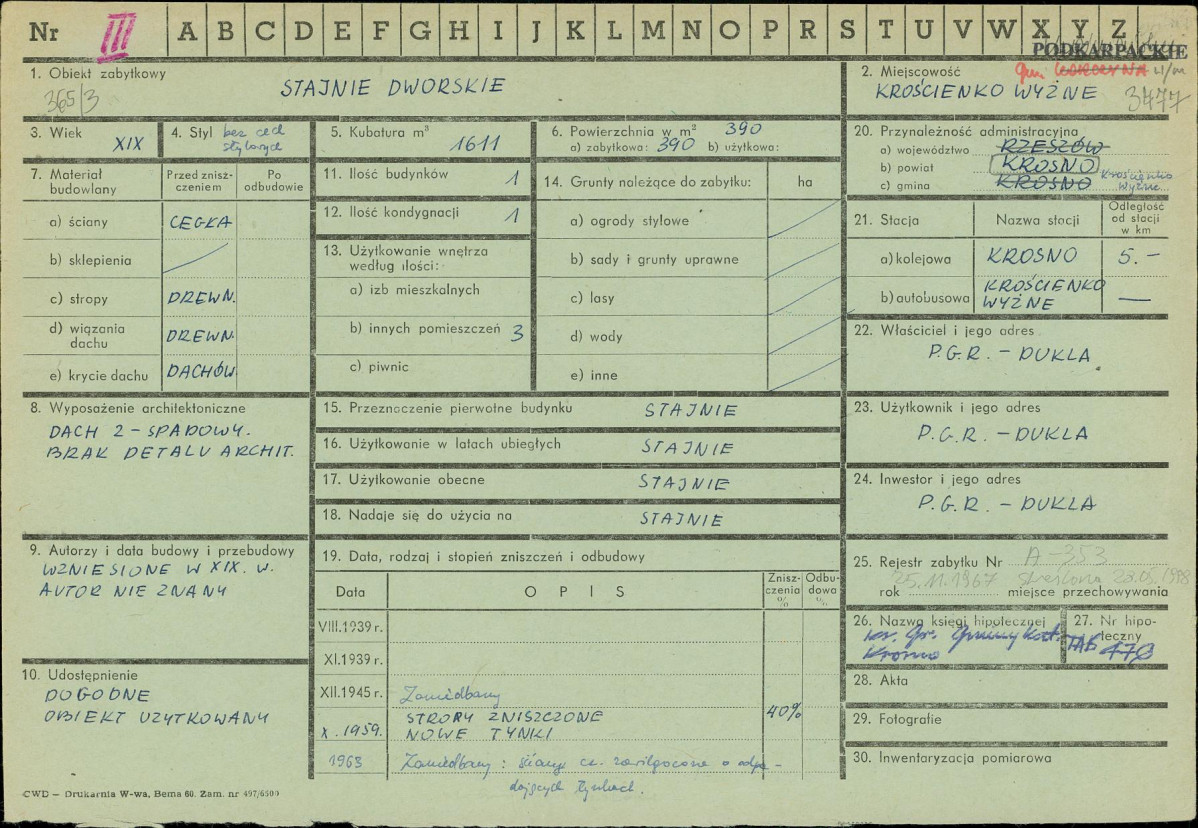 Nr III A B C D E F G H I J K L M N O P R S T U V W X Y Z
PODKARPACKIE
1. Obiekt zabytkowy
STAJNIE DWORSKIE
365/3
2. Miejscowość
gm. KORCZYNA
KROŚCIENKO WYŻNE
3477
3. Wiek
XIX
4. Styl bez cech
stylowych
5. Kubatura m³
1611
6. Powierzchnia w m² 390
a) zabytkowa: 390 b) użytkowa:
7. Materiał budowlany
Przed zniszczeniem
Po odbudowie
a) ściany CEGŁA
b) sklepienia
c) stropy DREWN.
d) wiązania dachu DREWN.
e) krycie dachu DACHÓW.
11. Ilość budynków 1
12. Ilość kondygnacji 1
13. Użytkowanie wnętrza
według ilości:
a) izb mieszkalnych
b) innych pomieszczeń 3
c) piwnic
14. Grunty należące do zabytku: ha
a) ogrody stylowe
b) sady i grunty uprawne
c) lasy
d) wody
e) inne
20. Przynależność administracyjna
a) województwo RZESZÓW
b) powiat KROSNO
c) gmina KROSNO Krościenko
Wyżne
21. Stacja
Nazwa stacji
Odległość
od stacji
w km
a) kolejowa KROSNO 5.-
b) autobusowa KROŚCIENKO
WYŻNE —
22. Właściciel i jego adres
P.G.R. - DUKLA
8. Wyposażenie architektoniczne
DACH 2-SPADOWY.
BRAK DETALU ARCHIT.
15. Przeznaczenie pierwotne budynku STAJNIE
16. Użytkowanie w latach ubiegłych STAJNIE
17. Użytkowanie obecne STAJNIE
18. Nadaje się do użycia na STAJNIE
23. Użytkownik i jego adres
P.G.R. - DUKLA
24. Inwestor i jego adres
P.G.R. - DUKLA
9. Autorzy i data budowy i przebudowy
WZNIESIONE W XIX. W.
AUTOR NIE ZNANY
10. Udostępnienie
DOGODNE
OBIEKT UŻYTKOWANY
19. Data, rodzaj i stopień zniszczeń i odbudowy
Data
OPIS
Zniszczenia %
Odbudowa %
VIII.1939 r.
XI.1939 r.
XII.1945 r. Zaniedbany
X. 1959. STROPY ZNISZCZONE
NOWE TYNKI
40%
1963 Zaniedbany: ściany cz. zawilgocone o odpa-
dających tynkach.
25. Rejestr zabytku Nr A-353
25.11.1967 skreślona 23.05.1988
rok miejsce przechowywania
26. Nazwa księgi hipotecznej
ks. gr. gminy kat.
Krosno
27. Nr hipoteczny
TAB 478
28. Akta
29. Fotografie
30. Inwentaryzacja pomiarowa
CWD — Drukarnia W-wa, Bema 60. Zam. nr 497/6500